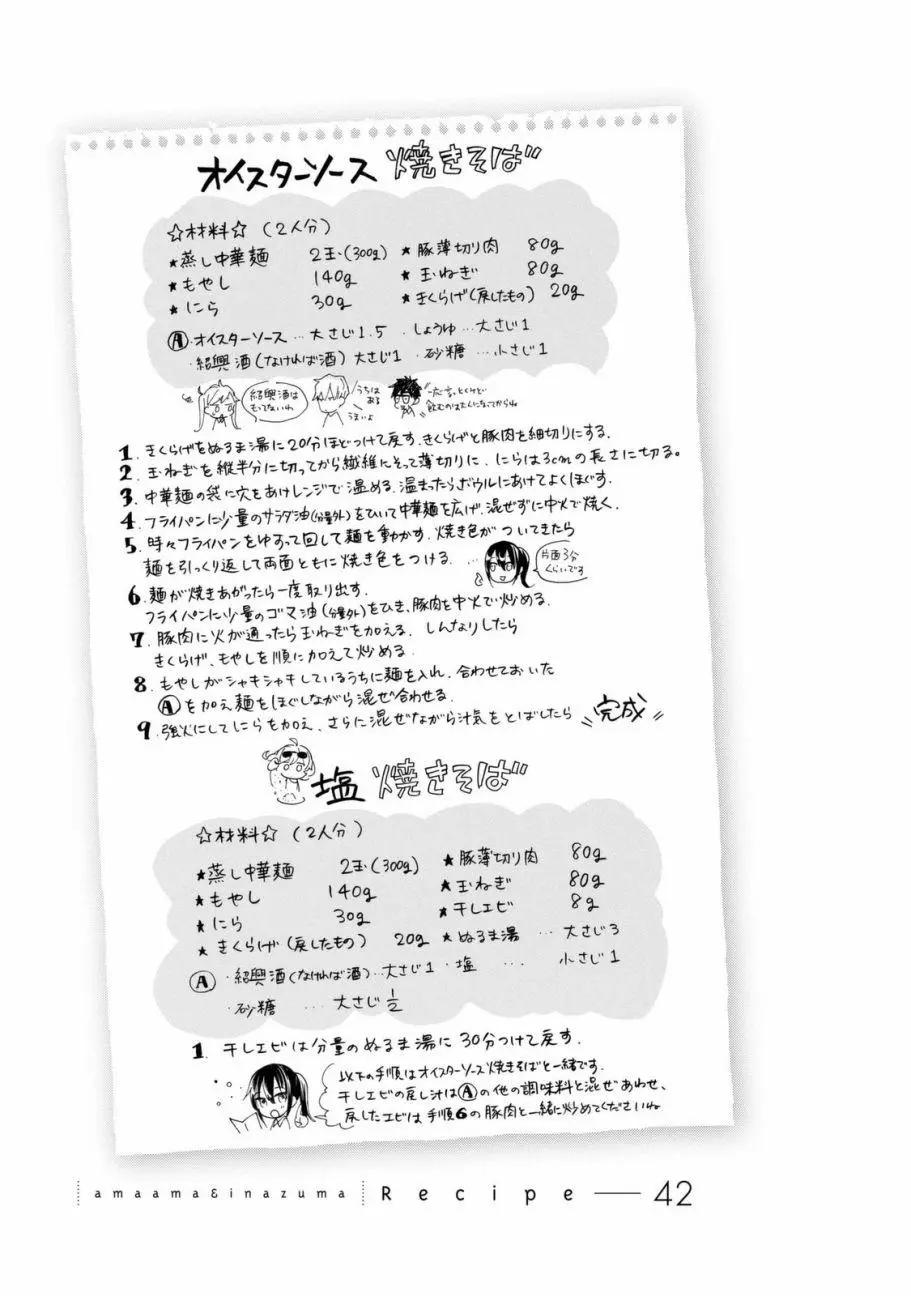 オイスターソース 焼きそば
☆材料☆ (2人分)
★蒸し中華麺 2玉(300g) ★豚薄切り肉 80g
★もやし 140g ★玉ねぎ 80g
★にら 30g ★きくらげ(戻したもの) 20g
Ⓐ・オイスターソース…大さじ1.5 ・しょうゆ…大さじ1
・紹興酒(なければ酒)大さじ1 ・砂糖…小さじ1
紹興酒は
もってないわ
うちは
ある
うまいよ
一応言っとくけど
飲むのは大人になってからね
1. きくらげをぬるま湯に20分ほどつけて戻す。きくらげと豚肉を細切りにする。
2. 玉ねぎを縦半分に切ってから繊維にそって薄切りに、にらは3cmの長さに切る。
3. 中華麺の袋に穴をあけレンジで温める。温まったらボウルにあけてよくほぐす。
4. フライパンに少量のサラダ油(分量外)をひいて中華麺を広げ、混ぜずに中火で焼く。
5. 時々フライパンをゆすって回して麺を動かす。焼き色がついてきたら
麺を引っくり返して両面ともに焼き色をつける。…
片面3分
くらいです
6. 麺が焼きあがったら一度取り出す。
フライパンに少量のゴマ油(分量外)をひき、豚肉を中火で炒める。
7. 豚肉に火が通ったら玉ねぎを加える。しんなりしたら
きくらげ、もやしを順に加えて炒める。
8. もやしがシャキシャキしているうちに麺を入れ、合わせておいた
Ⓐを加え麺をほぐしながら混ぜ合わせる。
9. 強火にしてにらを加え、さらに混ぜながら汁気をとばしたら 完成
塩 焼きそば
☆材料☆ (2人分)
★蒸し中華麺 2玉(300g) ★豚薄切り肉 80g
★もやし 140g ★玉ねぎ 80g
★にら 30g ★干しエビ 8g
★きくらげ(戻したもの) 20g ★ぬるま湯 …大さじ3
Ⓐ・紹興酒(なければ酒)…大さじ1 ・塩 … 小さじ1
・砂糖 …大さじ1/2
1. 干しエビは分量のぬるま湯に30分つけて戻す。
以下の手順はオイスターソース焼きそばと一緒です。
干しエビの戻し汁はⒶの他の調味料と混ぜあわせ、
戻したエビは手順6の豚肉と一緒に炒めてくださいね
amaama&inazuma Recipe 42